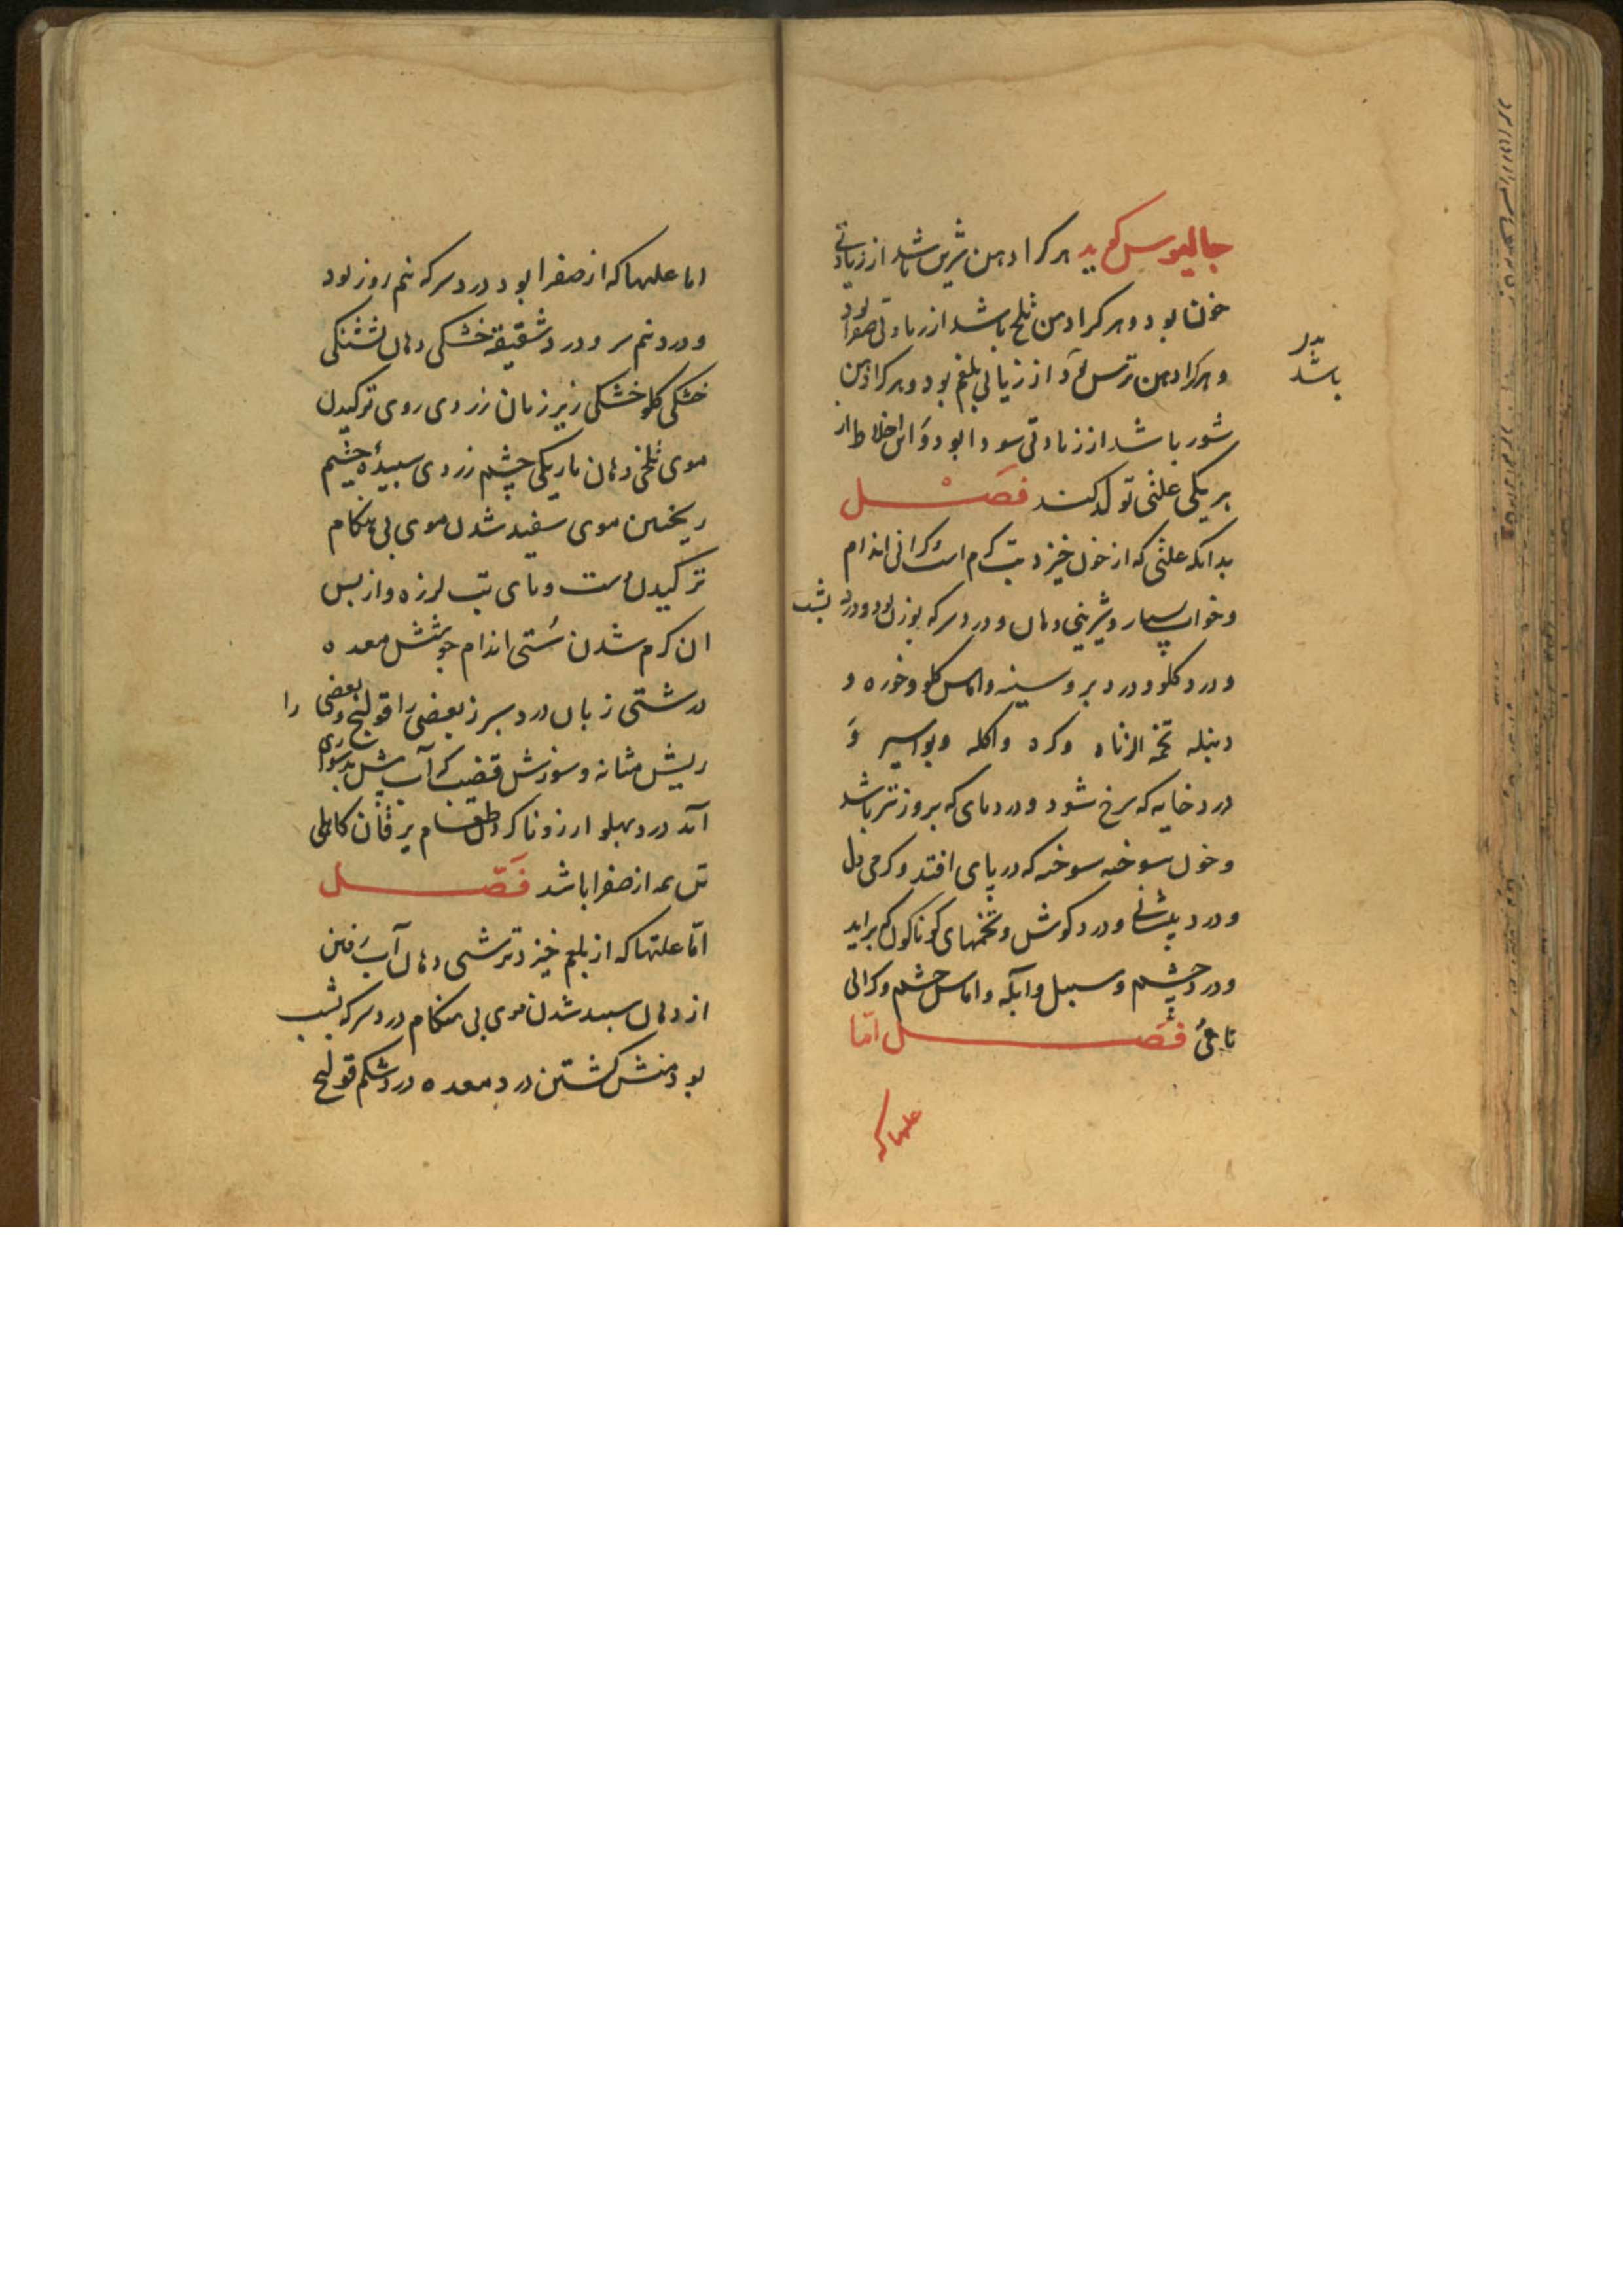 جالینوس گوید هر کرا دهن شیرین باشد از زیادتی
خون بود و هر کرا دهن تلخ باشد از زیادتی صفرا بود
و هر کرا دهن ترش بود از زیاتی بلغم بود و هر کرا دهن
شور باشد از زیادتی سودا بود و این اخلاط از
هر یکی علتی تولد کند فصل
بدانکه علتی که از خون خیزد تب کرم است و کرانی اندام
و خواب بسیار و شیرینی دهان و درد سر که بروز بود و درد پشت
و درد کلو و درد بر و سینه و اماس کلو و خوره و
دنبله واکله وبواسیر و
درد خایه که سرخ شود و دردهای که بروز تر باشد
و خون سوخته سوخته که در پای افتد و کرمی دل
و درد پیشانی و درد کوش و تخمهای کوناکون که براید
و درد چشم و سبل و آبله و اماس چشم و کرانی
فصل امّا
علتها که
باشد
اما علتها که از صفرا بود درد سر که نیم روز بود
و درد نیم سر و درد شقیقه خشکی دهان تشنکی
خشکی کلو خشکی زیر زبان زردی روی ترکیدن
موی تلخی دهان تاریکی چشم زردی سپیده چشم
ریختن موی سفید شدن موی بی هنکام
ترکیدن دست و پای تب لرزه و از پس
ان کرم شدن سستی اندام جوشش معده
درشتی زبان درد سپرز بعضی را قولنج و بعضی را
ریش مثانه و سوزش قضیب که آب پیش بدشواری
آید درد پهلو ارزو ناکردن طعام یرقان کاهلی
تن همه از صفرا باشد فصّل
امّا علتها که از بلغم خیزد ترشی دهان آب رفتن
از دهان سپید شدن موی بی هنکام درد سر که بشب
بود منش کشتن درد معده درد شکم قولنج